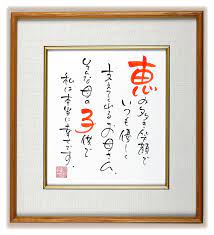 恵の多き笑顔で
いつも優しく
支えてくれるお母さん
そんな母の子供で
私は本当に幸せです。